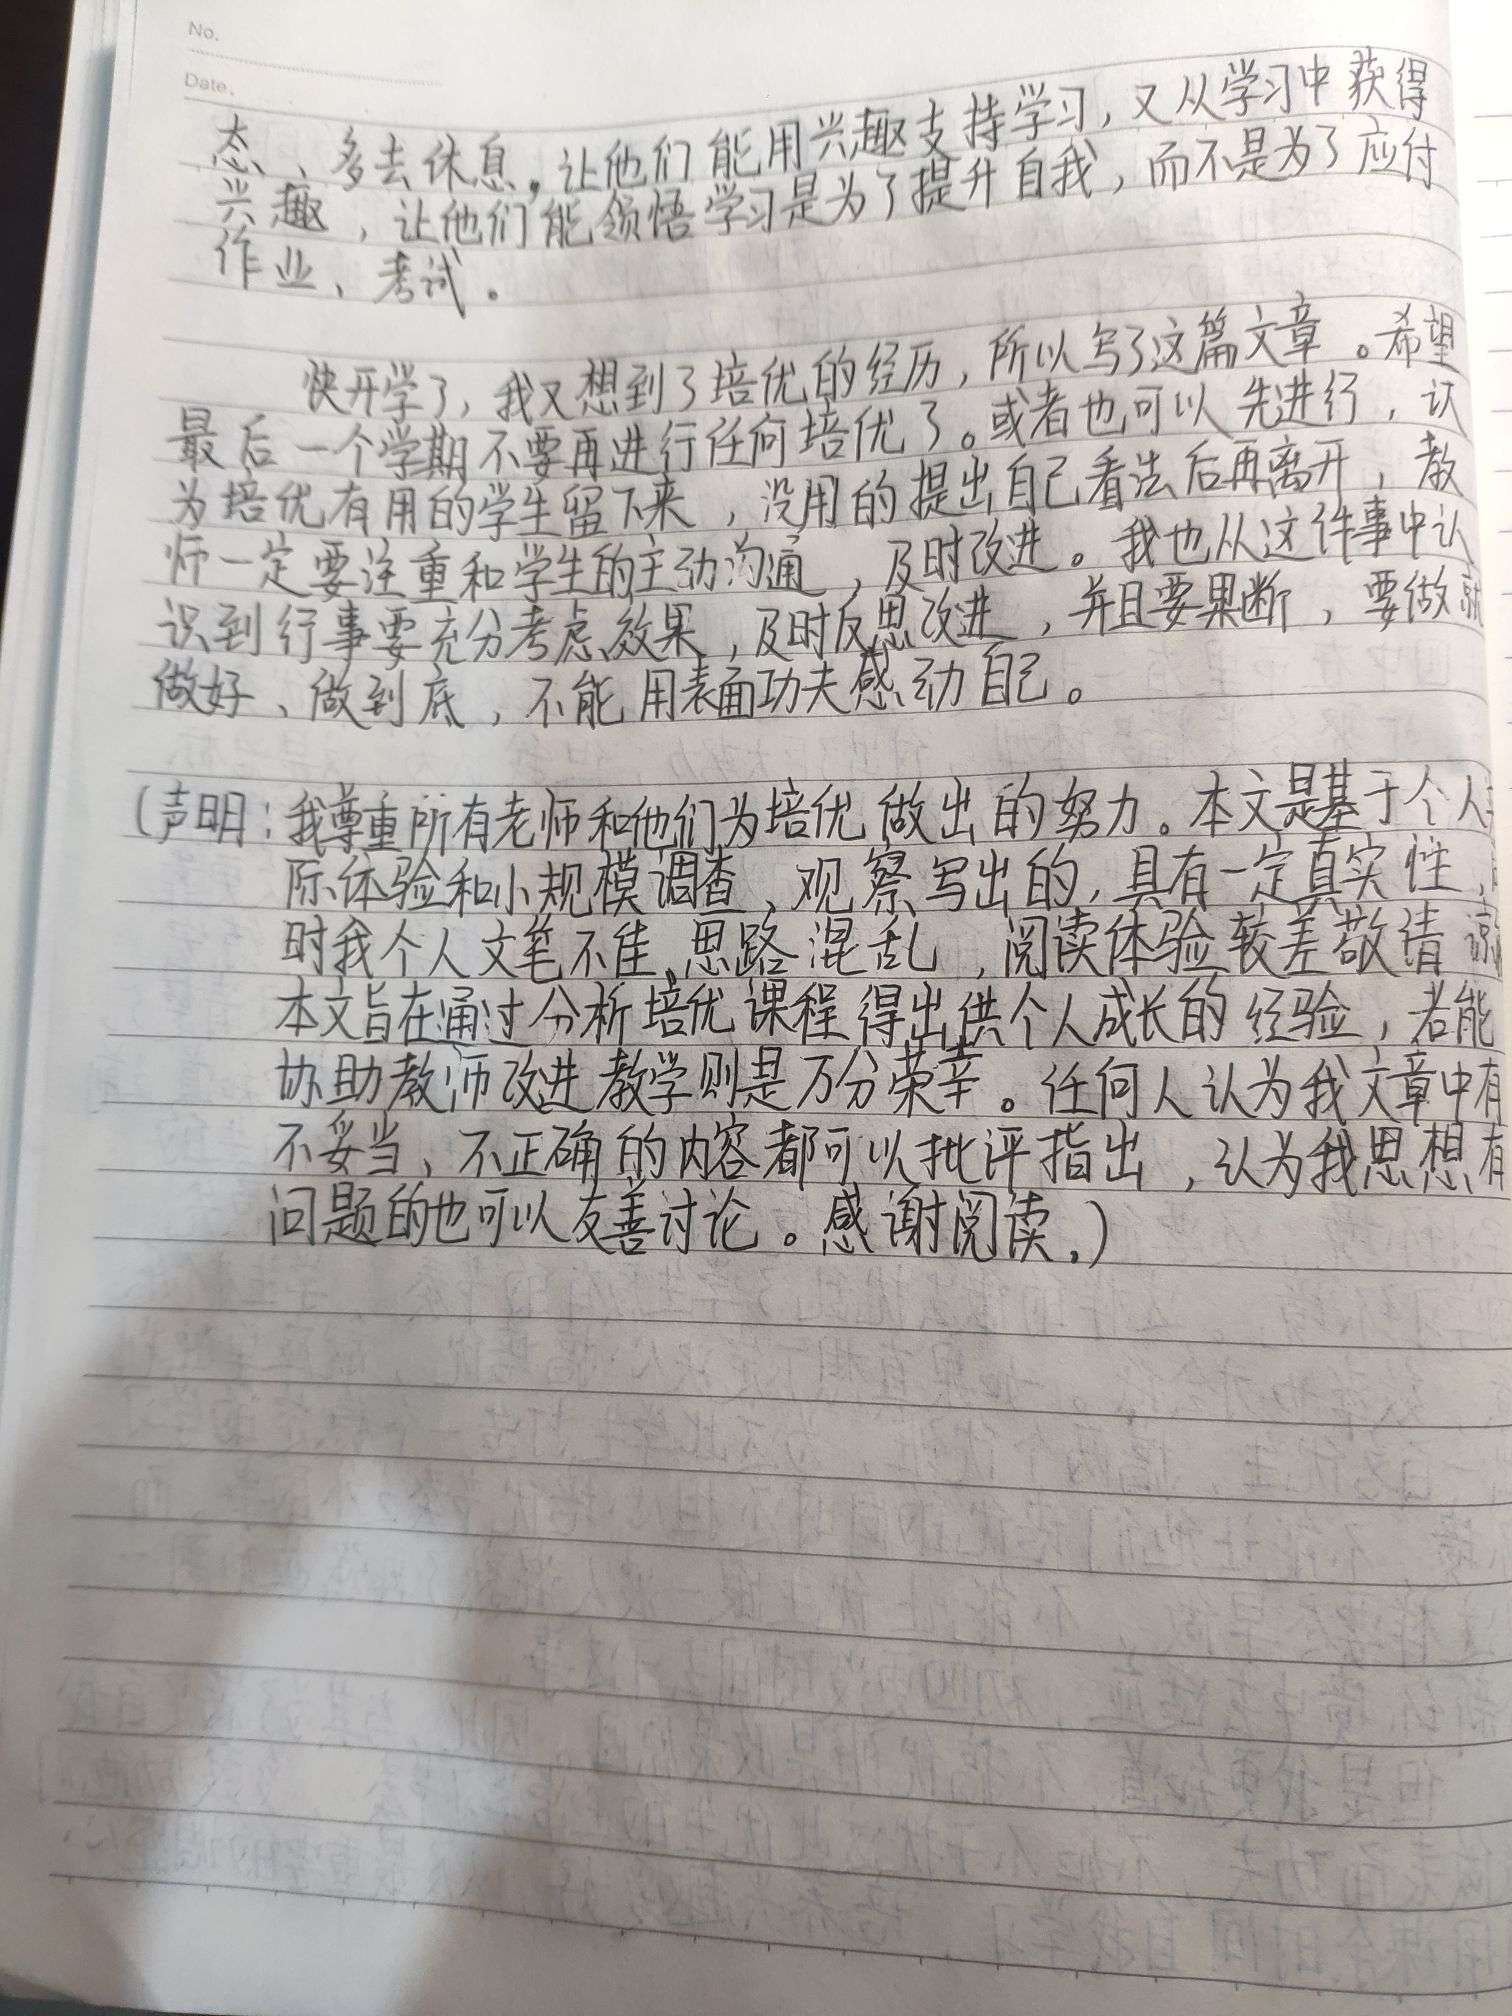 No.
Date.
态、多去休息，让他们能用兴趣支持学习，又从学习中获得
兴趣，让他们能领悟学习是为了提升自我，而不是为了应付
作业、考试。
快开学了，我又想到了培优的经历，所以写了这篇文章。希望
最后一个学期不要再进行任何培优了。或者也可以先进行，认
为培优有用的学生留下来，没用的提出自己看法后再离开，教
师一定要注重和学生的主动沟通，及时改进。我也从这件事中认
识到行事要充分考虑效果，及时反思改进，并且要果断，要做就
做好、做到底，不能用表面功夫感动自己。
（声明：我尊重所有老师和他们为培优做出的努力。本文是基于个人
际体验和小规模调查、观察写出的，具有一定真实性，
时我个人文笔不佳、思路混乱，阅读体验较差敬请谅
本文旨在通过分析培优课程得出供个人成长的经验，若能
协助教师改进教学则是万分荣幸。任何人认为我文章中有
不妥当、不正确的内容都可以批评指出，认为我思想有
问题的也可以友善讨论。感谢阅读。）